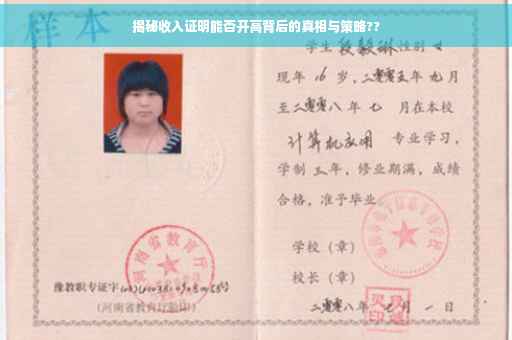 揭秘收入证明能否开高背后的真相与策略??
样本
学生 段毅琳 性别 女
现年 16 岁，二零零五年 九 月
至二零零八年 七 月在本校
计算机应用 专业学习，
学制 三 年，修业期满，成绩
合格，准予毕业
学校（章）
校长（章）
二零零八年 七 月 一 日
河南省教育厅
豫教职专证字
（河南省教育厅验印）